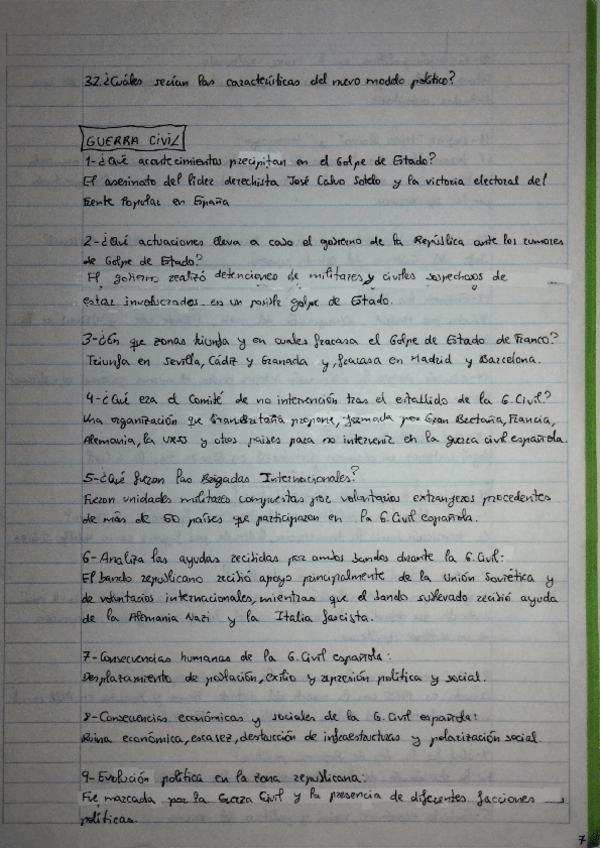 32.¿Cuáles serían las características del nuevo modelo político?
GUERRA CIVIL
1-¿Qué acontecimientos precipitan en el Golpe de Estado?
El asesinato del líder derechista José Calvo Sotelo y la victoria electoral del
Frente Popular en España
2-¿Qué actuaciones lleva a cabo el gobierno de la República ante los rumores
de Golpe de Estado?
El gobierno realizó detenciones de militares y civiles sospechosos de
estar involucrados en un posible golpe de Estado.
3-¿En que zonas triunfa y en cuales fracasa el Golpe de Estado de Franco?
Triunfa en Sevilla, Cádiz y Granada y, fracasa en Madrid y Barcelona.
4-¿Qué era el Comité de no intervención tras el estallido de la G. Civil?
Una organización que Granbretaña propone, formada por Gran Bretaña, Francia,
Alemania, la URSS y otros países para no intervenir en la guerra civil española.
5-¿Qué fueron las Brigadas Internacionales?
Fueron unidades militares compuestas por voluntarios extrangeros procedentes
de más de 50 países que participaron en la G. Civil española.
6-Analiza las ayudas recibidas por ambos bandos durante la G. Civil:
El bando republicano recibió apoyo principalmente de la Unión Soviética y
de voluntarios internacionales, mientras que el bando sublevado recibió ayuda
de la Alemania Nazi y la Italia fascista.
7-Consecuencias humanas de la G. Civil española:
Desplazamiento de población, exilio y represión política y social.
8-Consecuencias económicas y sociales de la G. Civil española:
Ruina económica, escasez, destrucción de infraestructuras y polarización social.
9-Evolución política en la zona republicana:
Fue marcada por la Guerra Civil y la presencia de diferentes facciones
políticas.
7